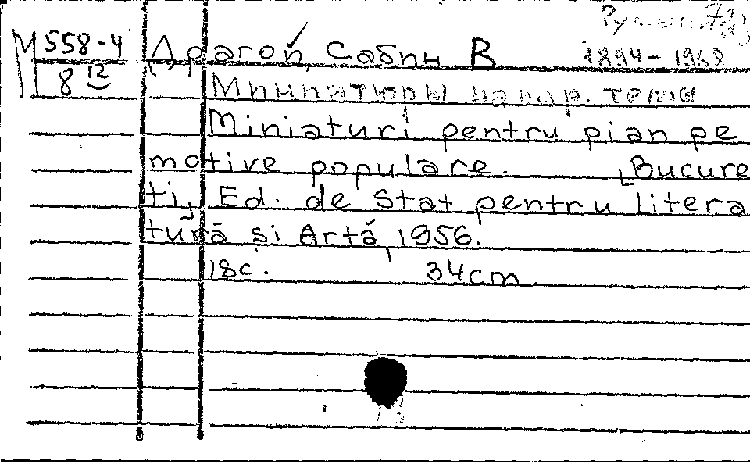 М 558-4
8 12
Драгой, Сабин В
1894-1968
Миниатюры на нар. темы
Miniaturi pentru pian pe
motive populare. Bucure
ti, Ed. de Stat pentru litera
tură si Artă, 1956.
18c. 34cm